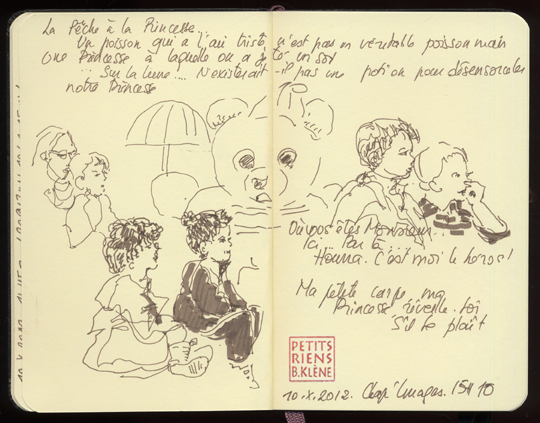 La Pêche à la Princesse.
Un poisson qui a l'air triste, n'est pas un véritable poisson mais
une Princesse à laquelle on a jeté un sort
... Sur la lune ... N'existerait-il pas une potion pour désensorceler
notre Princesse
Où vos êtes Monsieur.
Ici, Par là...
C'est moi le héros!
Ma petite carpe, ma
Princesse réveille-toi
S'il te plaît
PETITS
RIENS
B.KLÈNE
10.X.2012. Chap'Images. 15H10